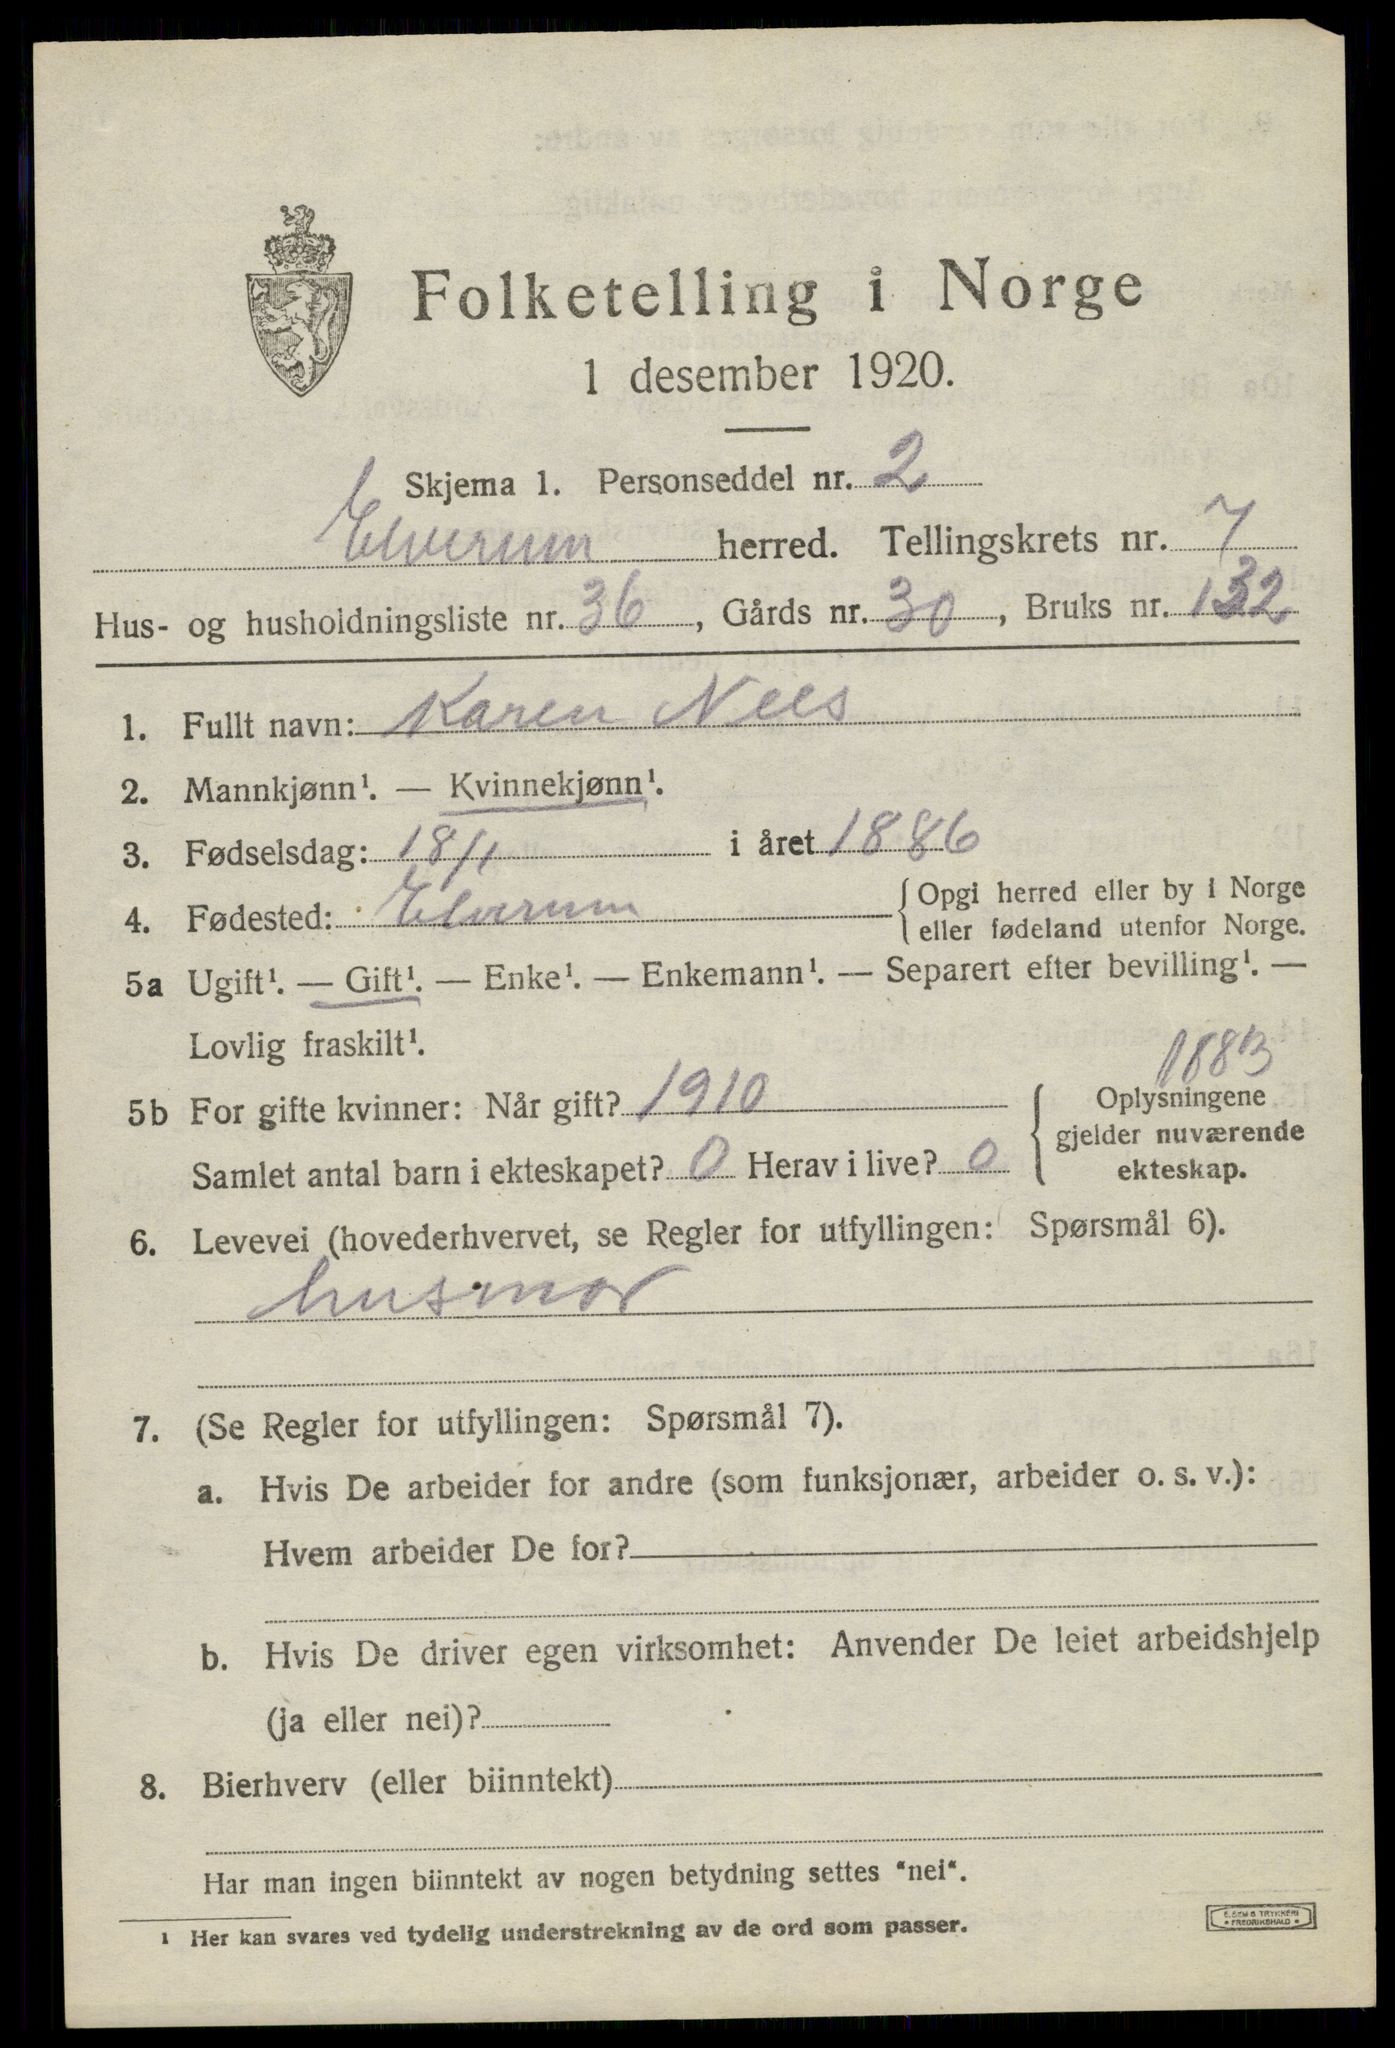 Folketelling i Norge
1 desember 1920.
Skjema 1. Personseddel nr. 2
Elverum herred. Tellingskrets nr. 7
Hus- og husholdningsliste nr. 36, Gårds nr. 30, Bruks nr. 132
1. Fullt navn: Karen Nees
2. Mannkjønn¹. — Kvinnekjønn¹.
3. Fødselsdag: 18/1 i året 1886
4. Fødested: Elverum {Opgi herred eller by i Norge
eller fødeland utenfor Norge.
5a Ugift¹. — Gift¹. — Enke¹. — Enkemann¹. — Separert efter bevilling¹. —
Lovlig fraskilt¹.
1883
5b For gifte kvinner: Når gift? 1910
Samlet antal barn i ekteskapet? 0 Herav i live? 0
Oplysningene
gjelder nuværende
ekteskap.
6. Levevei (hovederhvervet, se Regler for utfyllingen: Spørsmål 6).
husmor
7. (Se Regler for utfyllingen: Spørsmål 7).
a. Hvis De arbeider for andre (som funksjonær, arbeider o. s. v.):
Hvem arbeider De for?
b. Hvis De driver egen virksomhet: Anvender De leiet arbeidshjelp
(ja eller nei)?
8. Bierhverv (eller biinntekt)
Har man ingen biinntekt av nogen betydning settes "nei".
¹ Her kan svares ved tydelig understrekning av de ord som passer.
E. SEM S TRYKKERI
FREDRIKSHALD